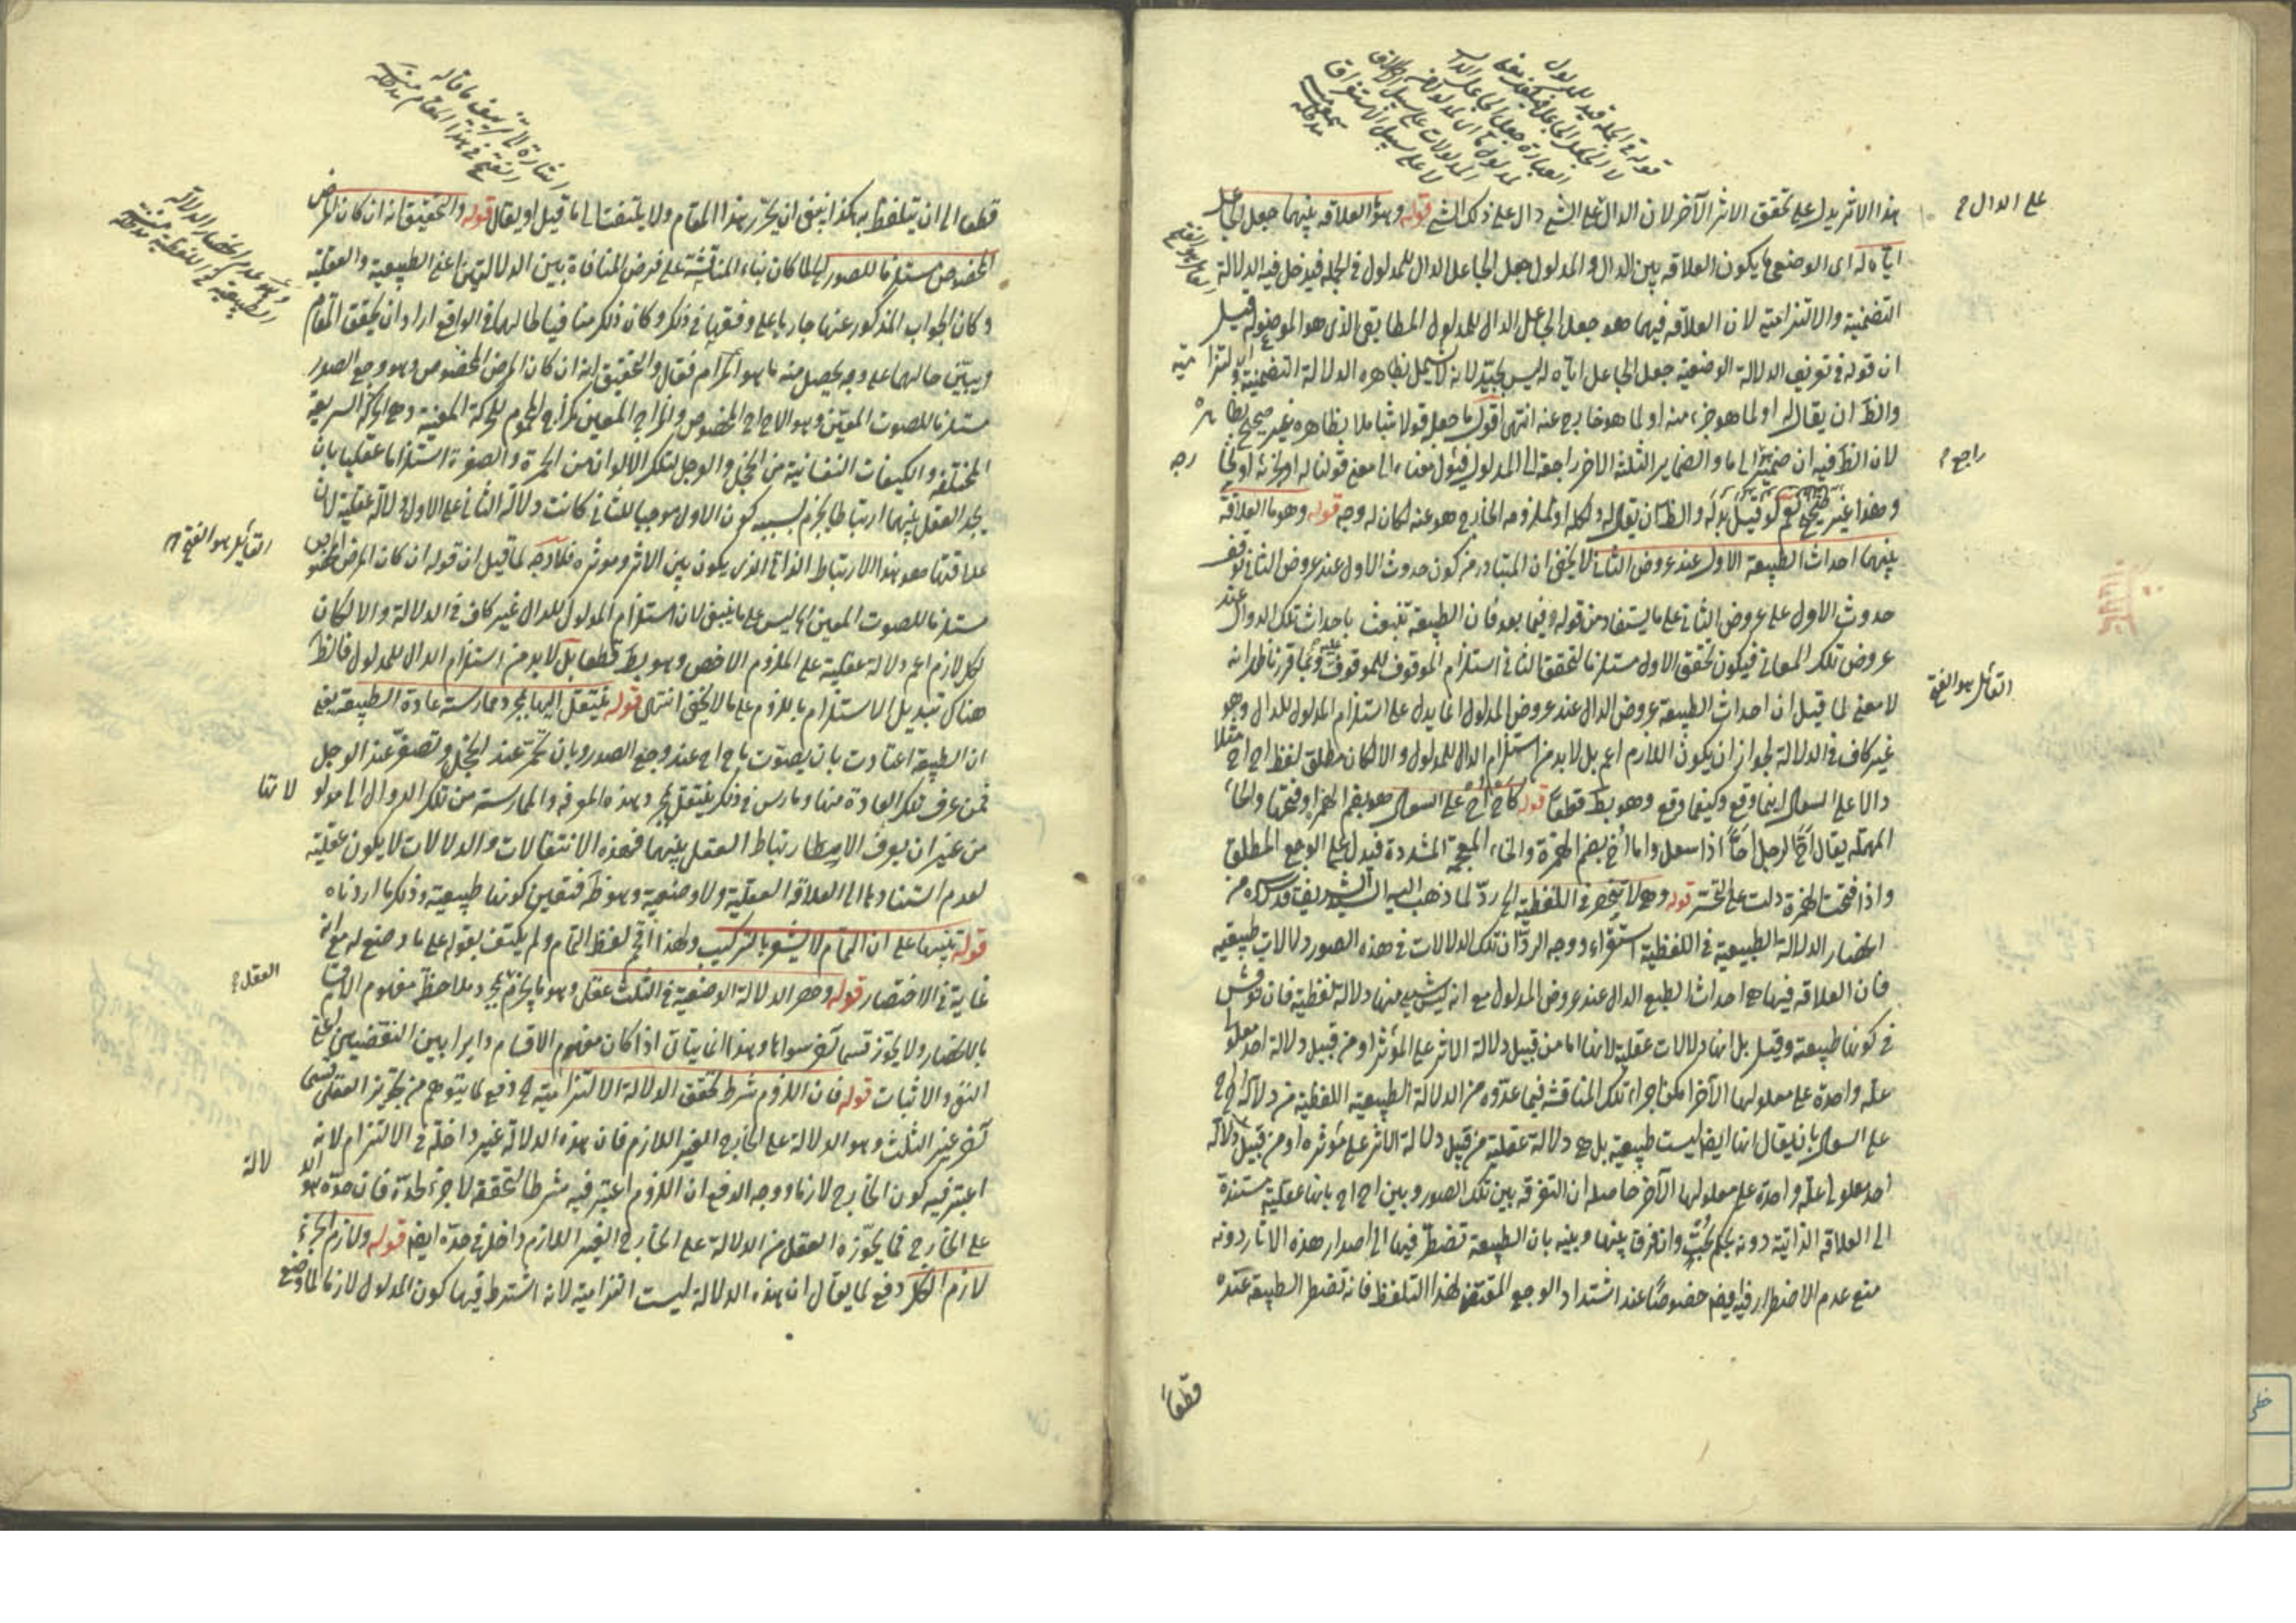 هذا الاثر يدل على تحقق الاثر الآخر لان الدال على الشئ دال على ذلك الشئ قوله وهو العلاقة بينهما جعل الجاعل
اياه له اى الوضعى ما يكون العلاقه بين الدال والمدلول جعل الجاعل الدال للمدلول فى الجملة فيدخل فيه الدلالة
التضمنية والالتزامية لان العلاقه فيهما هو جعل الجاعل الدال للمدلول المطابقى الذى هو الموضوع له قيل
ان قوله فى تعريف الدلالة الوضعية جعل الجاعل اياه له ليس بجيد لانه لا يشمل بظاهره الدلالة التضمنية والالتزامية
والظ ان يقال له او لما هو جزء منه او لما هو خارج عنه انتهى اقول ما جعله قولا شاملا بظاهره غير صحيح بظاهره
لان الظ فيه ان ضمير الى ما والضماير الثلثة الاخر راجعة الى المدلول فيئول معناه الى معنى قولنا له او لجزئه او لخارجه
وهذا غير صحيح نعم لو قيل بدله والظ ان يقال له ولكله او لملزومه الخارج هو عنه لكان له وجه قوله وهو ما العلاقة
بينهما احداث الطبيعة الاول عند عروض الثانى لا يخفى ان المتبادر من كون حدوث الاول عند عروض الثانى توقف
حدوث الاول على عروض الثانى على ما يستفاد من قوله وفيما بعد فان الطبيعة تنبعث باحداث تلك الدوال عند
عروض تلك المعانى فيكون تحقق الاول مستلزما لتحقق الثانى استلزام الموقوف للموقوف عليه وبما قررنا ظهر انه
لا معنى لما قيل ان احداث الطبيعة عروض الدال عند عروض المدلول انما يدل على استلزام المدلول للدال وهو
غير كاف فى الدلالة لجواز ان يكون اللازم اعم بل لا بد من استلزام الدال للمدلول والا لكان مطلق لفظ اح اح مثلا
دالا على السعال اينما وقع وكيفما وقع وهو بط قطعا قوله كاح اح على السعال هو بضم الهمزة وفتحها والحاء
المهملة يقال اح الرجل احا اذا سعل واما اخ بضم الهمزة والخاء المعجمة المشددة فيدل على الوجع المطلق
واذا فتحت الهمزة دلت على التحسر قوله وهى لا تنحصر فى اللفظية الخ رد لما ذهب اليه السيد الشريف قدس سره من
انحصار الدلالة الطبيعية فى اللفظية استقراء ووجه الرد ان تلك الدلالات فى هذه الصور دلالات طبيعية
فان العلاقه فيها هى احداث الطبع الدال عند عروض المدلول مع انه ليس شئ منها دلالة لفظية فان نوقش
فى كونها طبيعية وقيل بل انها دلالات عقلية لانها اما من قبيل دلالة الاثر على المؤثر او من قبيل دلالة احد معلولى
علة واحدة على معلولها الآخر امكن اجراء تلك المناقشة فيما عدوه من الدلالة الطبيعية اللفظية من دلالة اح اح
على السعال بان يقال انها ايضا ليست طبيعية بل هى دلالة عقلية من قبيل دلالة الاثر على مؤثره او من قبيل دلالة
احد معلولى علة واحدة على معلولها الآخر فاصله ان التفرقه بين تلك الصور وبين اح اح بانها عقلية مستندة
الى العلاقه الذاتية دونه تحكم بحت وان فرق بينها وبينه بان الطبيعة تضطر فيها الى اصدار هذه الاثار دونه
منع عدم الاضطرار فيه ايضا خصوصا عند اشتداد الوجع المقتضى لهذا التلفظ فانه تضطر الطبيعة عنده
قطعا
على الدال
راجع
القائل هو الفتح
قطعا الى ان يتلفظ به هكذا ينبغى ان يحرر هذا المقام ولا يلتفت الى ما قيل او يقال قوله والتحقيق انه ان كان المرض
المخصوص مستلزما للصور الخ لما كان بناء المناقشة على فرض المنافاة بين الدلالتين اعنى الطبيعية والعقلية
وكان الجواب المذكور عنها جاريا على وفقها فى ذلك وكان ذلك منافيا لما لهما فى الواقع اراد ان يحقق المقام
ويبين حالهما على وجه يحصل منه ما هو المرام فقال والتحقيق انه ان كان المرض المخصوص وهو وجع الصدر
مستلزما للصوت المعين وهو الاح اح المخصوص والمزاج المعين كمزاج المحموم للحركة المعينة وهى الحركة السريعة
المختلفة والكيفات النفسانية من الخجل والوجل لتلك الالوان من الحمرة والصفرة استلزاما عقليا بان
يجد العقل بينهما ارتباطا يجزم بسببه كون الاول موجبا للثانى كانت دلالة الثانى على الاول دلالة عقلية لان
علاقتها هو هذا الارتباط الذاتى الذى يكون بين الاثر ومؤثره فلا وجه لما قيل ان قوله ان كان المرض المخصوص
مستلزما للصوت المعين الخ ليس على ما ينبغى لان استلزام المدلول للدال غير كاف فى الدلالة والا لكان
لكل لازم اعم دلالة عقلية على الملزوم الاخص وهو بط قطعا بل لا بد من استلزام الدال للمدلول فالظ
هناك تبديل الاستلزام باللزوم على ما لا يخفى انتهى قوله ينتقل اليها بمجرد ممارسة عادة الطبيعة يعنى
ان الطبيعة اعتادت بان يصوت باح اح عند وجع الصدر وبان تحمر عند الخجل وتصفر عند الوجل
فمن عرف تلك العادة منها ومارس فى ذلك ينتقل بمجرد هذه المعرفة والممارسة من تلك الدوال الى مدلولاتها
من غير ان يعرف الارتباط العقلى بينهما فهذه الانتقالات والدلالات لا يكون عقلية
لعدم استنادها الى العلاقة العقلية ولا وضعية وهو ظ فتعين كونها طبيعية وذلك ما اردناه
قوله تنبيها على ان التمام لا يشعر بالتركيب ولهذا اقحم لفظ التمام ولم يكتف بقوله على ما وضع له مع انه
غاية فى الاختصار قوله وحصر الدلالة الوضعية فى الثلث عقلى وهو ما يجزم العقل بمجرد ملاحظة مفهوم الاقسام
بالانحصار ولا يجوز قسما آخر سواها وهذا انما يتاتى اذا كان مفهوم الاقسام دايرا بين النقيضين اعنى
النفى والاثبات قوله فان اللزوم شرط لتحقق الدلالة الالتزامية الخ دفع لما يتوهم من تجويز العقل قسما
آخر غير الثلث وهو الدلالة على الخارج الغير اللازم فان هذه الدلالة غير داخلة فى الالتزام لانه
اعتبر فيه كون الخارج لازما ووجه الدفع ان اللزوم اعتبر فيه شرطا لتحققه لا جزء لحده فان حده هو الدلالة
على الخارج فما يجوزه العقل من الدلالة على الخارج الغير اللازم داخل فى حده ايضا قوله ولازم الجزء
لازم الكل دفع لما يقال ان هذه الدلالة ليست التزامية لانه اشترط فيها كون المدلول لازما لما وضع
القائل هو الفتح
العقل